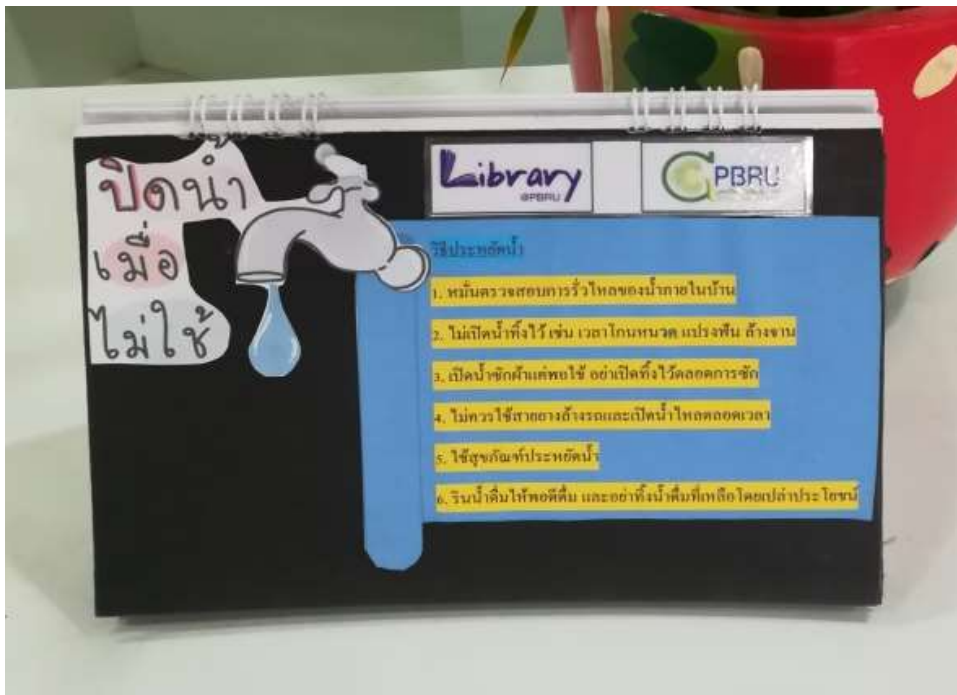 ปิดน้ำ
เมื่อ
ไม่ใช้
Library
@PBRU
PBRU
วิธีประหยัดน้ำ
1. หมั่นตรวจสอบการรั่วไหลของน้ำภายในบ้าน
2. ไม่เปิดน้ำทิ้งไว้ เช่น เวลาโกนหนวด แปรงฟัน ล้างจาน
3. เปิดน้ำซักผ้าแค่พอใช้ อย่าเปิดทิ้งไว้ตลอดการซัก
4. ไม่ควรใช้สายยางล้างรถและเปิดน้ำไหลตลอดเวลา
5. ใช้สุขภัณฑ์ประหยัดน้ำ
6. รินน้ำดื่มให้พอดีดื่ม และอย่าทิ้งน้ำดื่มที่เหลือโดยเปล่าประโยชน์